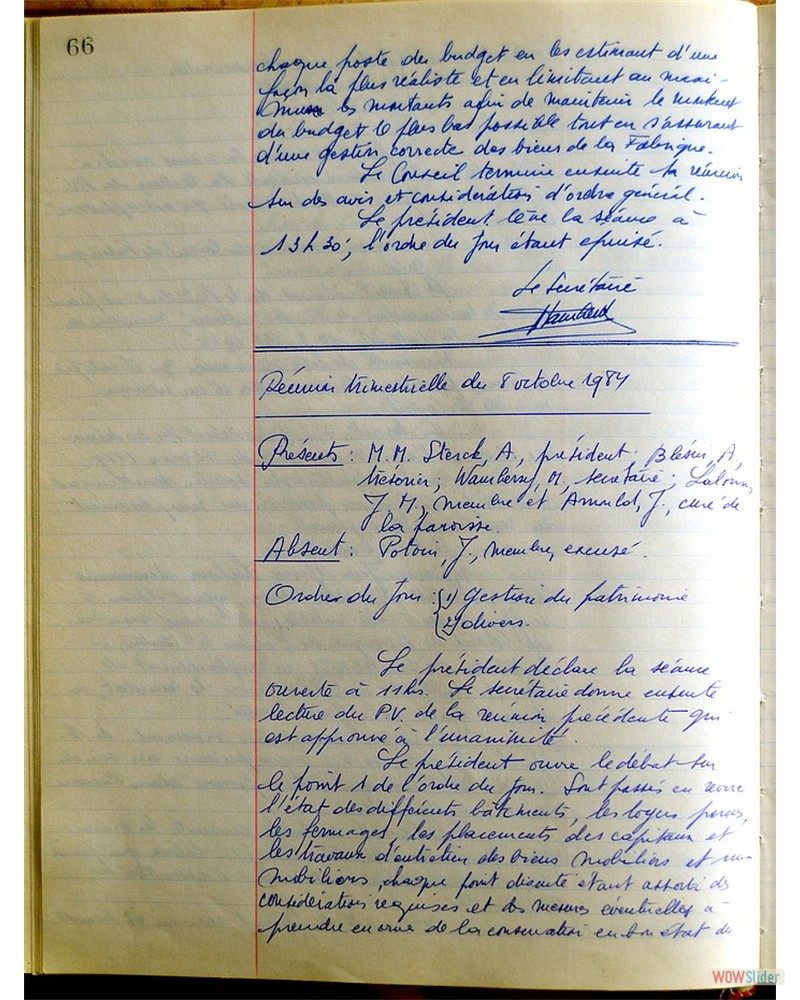 66
chaque poste du budget en les estimant d'une
façon la plus réaliste et en limitant au maxi-
mum les montants afin de maintenir le montant
du budget le plus bas possible tout en s'assurant
d'une gestion correcte des biens de la Fabrique.
Le Conseil termine ensuite sa réunion
sur des avis et considérations d'ordre général.
Le président lève la séance à
13h30', l'ordre du Jour étant epuisé.
Le Secrétaire
Réunion trimestrielle du 8 octobre 1984
Présents : M.M. Sterck, A., président; Blésin, A,
trésorier; Wambersy, M. secrétaire; Laloux,
J.M., membre et Arnould, J., curé de
la paroisse.
Absent : Potvin, J., membre, excusé.
Ordre du Jour : 1) gestion du patrimoine
2) divers.
Le président déclare la séance
ouverte à 11hs. Le secrétaire donne ensuite
lecture du P.V. de la réunion précédente qui
est approuvé à l'unanimité.
Le président ouvre le débat sur
le point 1 de l'ordre du Jour. Sont passés en revue
l'état des différents bâtiments, les loyers perçus,
les fermages, les placements des capitaux et
les travaux d'entretien des biens mobiliers et im-
mobiliers, chaque point discuté étant assorti des
considérations requises et des mesures éventuelles à
prendre en vue de la conservation en bon état du
WOWSlider